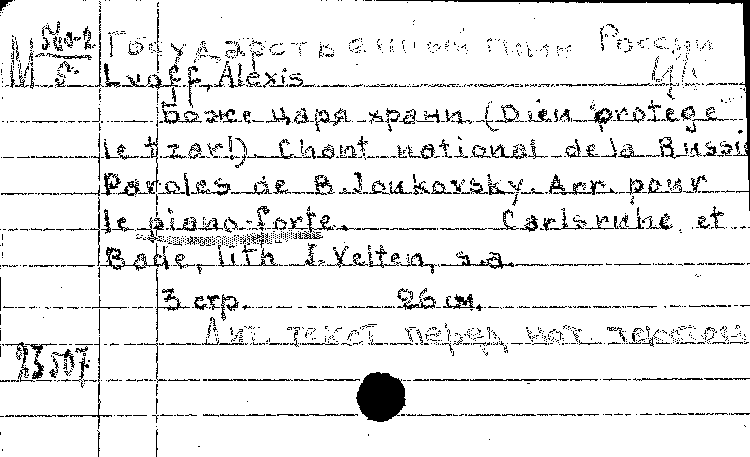 M 560-2 Государственный гимн России
5
Lvoff, Alexis
Боже царя храни (Dieu protège
le tzar!). Chant national de la Russie
Paroles de B. Joukovsky. Arr. pour
le piano-forte. Carlsruhe et
Bade, lith J. Velten, s.a.
3 стр. 26 см.
Лит. текст перед нот. текстом
23507